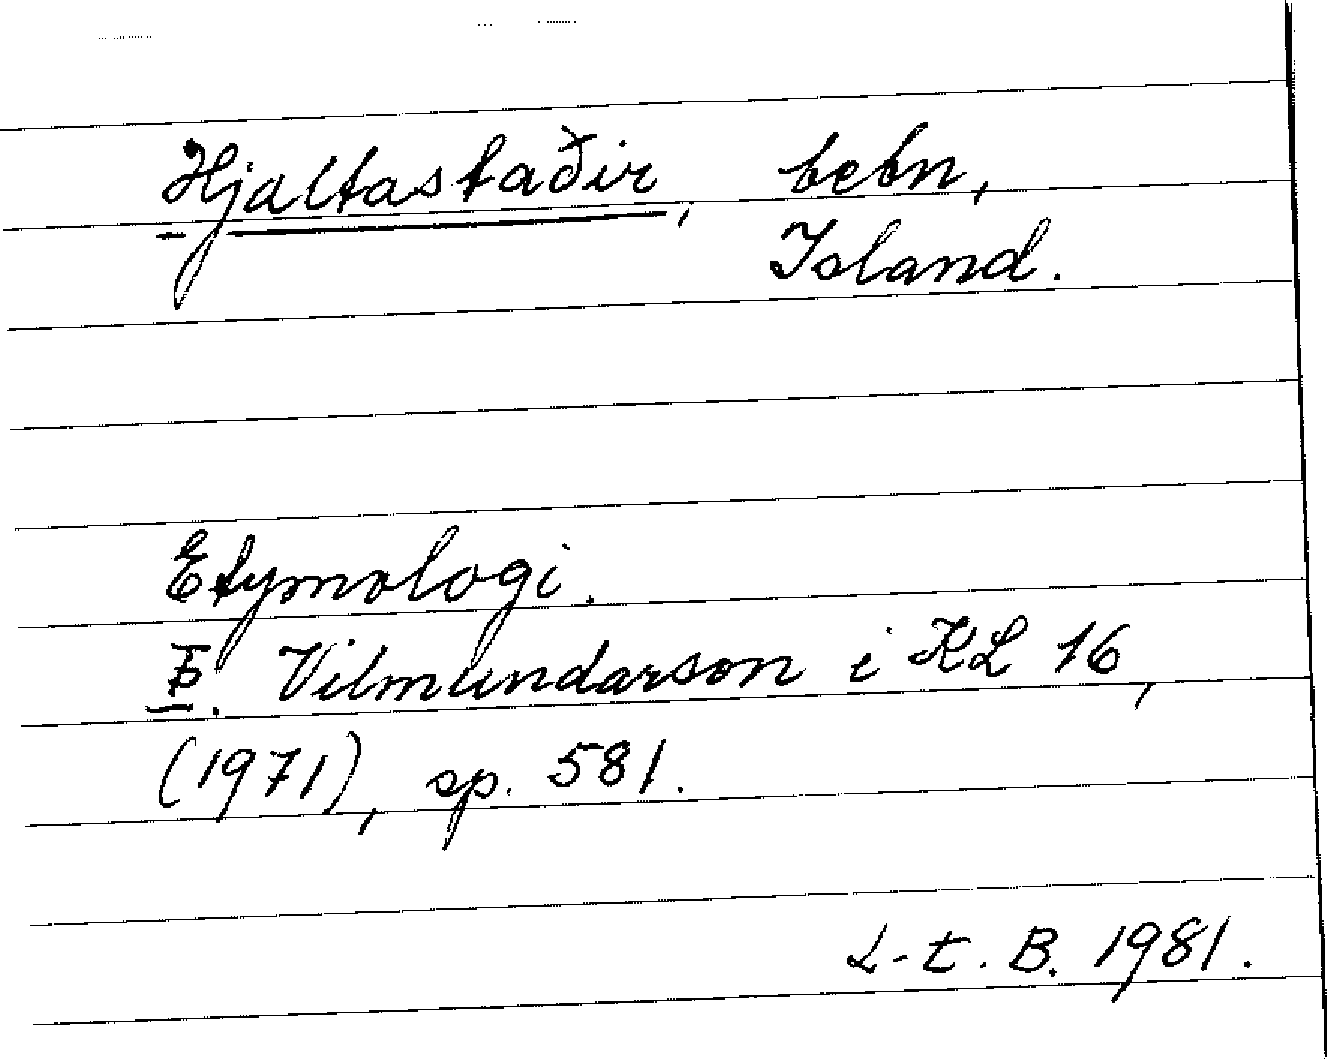 Hjaltastaðir, bebn,
Island.
Etymologi.
Þ. Vilmundarson i KL 16,
(1971), sp. 581.
L-t. B. 1981.